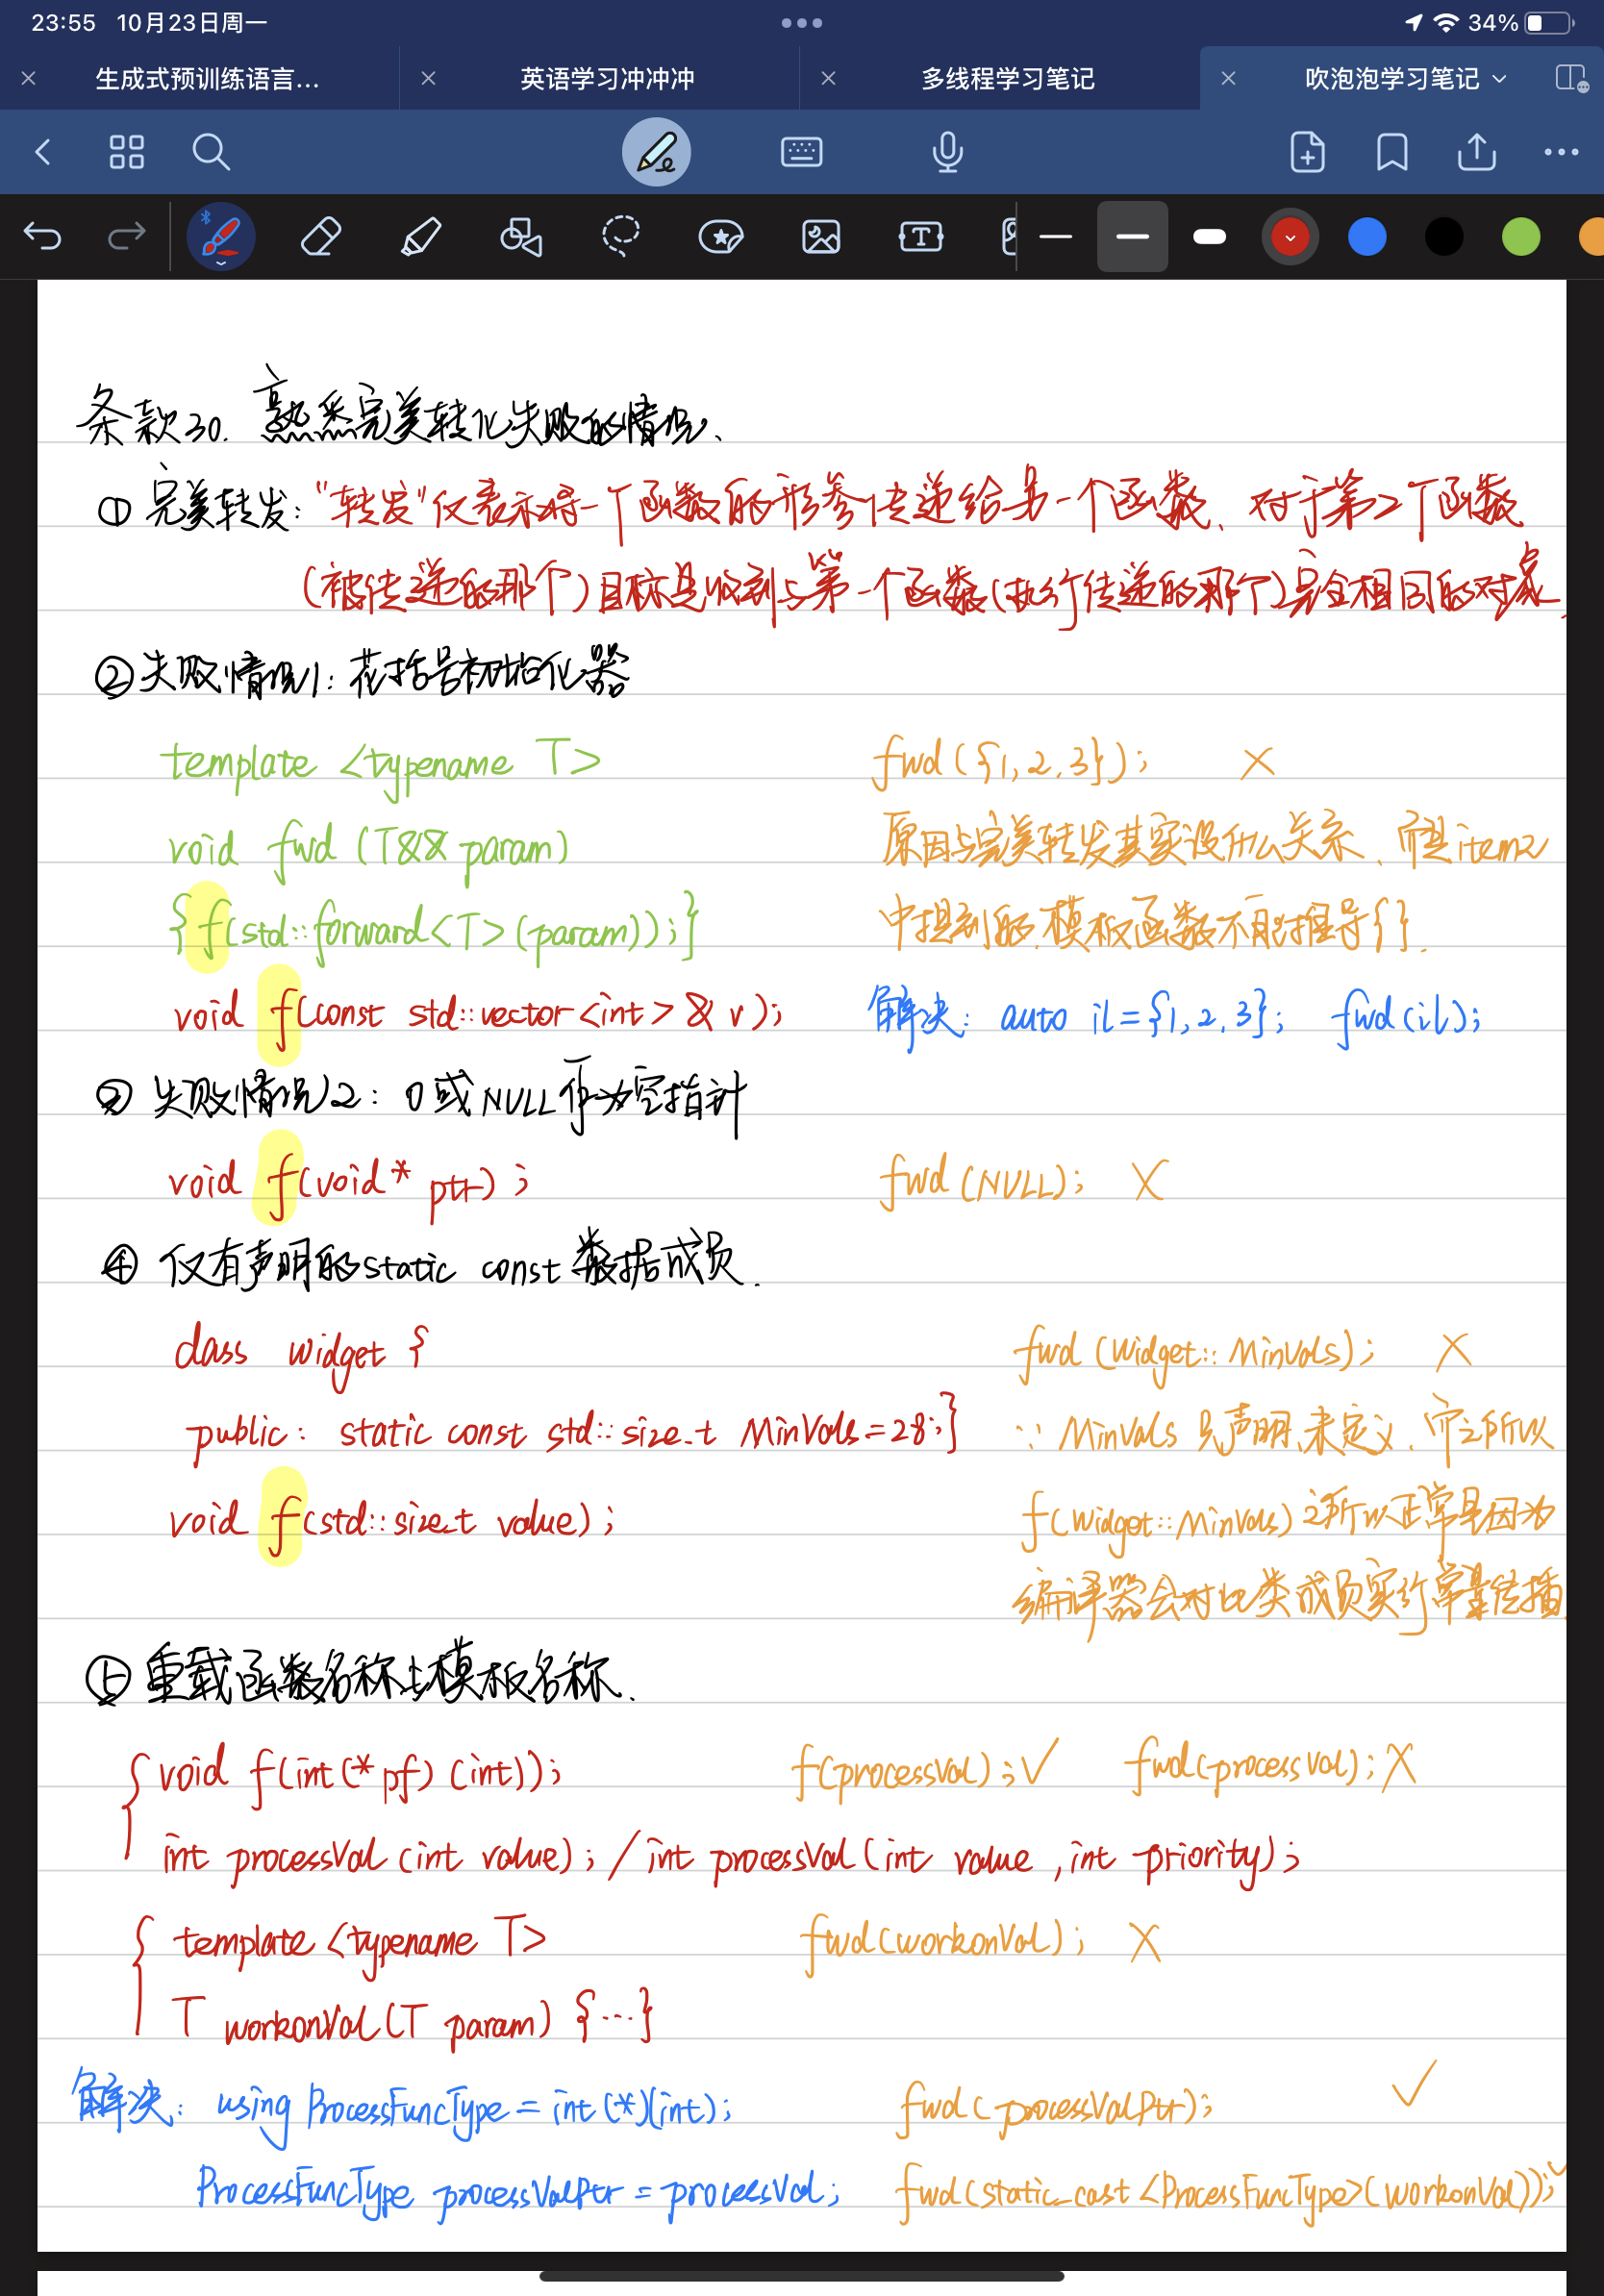 23:55 10月23日周一
34%
生成式预训练语言...
英语学习冲冲冲
多线程学习笔记
吹泡泡学习笔记
条款30. 熟悉完美转化失败的情况.
① 完美转发: "转发"仅表示将一个函数的形参传递给另一个函数、对于第2个函数
(被传递的那个)目标是收到与第一个函数(执行传递的那个)完全相同的对象.
② 失败情况1: 花括号初始化器
template <typename T>
fwd({1,2,3}); ×
void fwd (T&& param)
原因与完美转发其实没什么关系、而是item2
{f(std::forward<T>(param));}
中提到的.模板函数不能推导{}.
void f(const std::vector<int>& v);
解决: auto il={1,2,3}; fwd(il);
③ 失败情况2: 0或NULL作为空指针
void f(void* ptr);
fwd(NULL); ×
④ 仅有声明的static const数据成员.
class widget {
fwd(widget::MinVals); ×
public: static const std::size_t MinVals=28;}
∵ MinVals 只声明、未定义.而之所以
void f(std::size_t value);
f(widget::MinVals)之所以正常是因为
编译器会对比类成员实行常量传播.
⑤ 重载函数名称与模板名称.
void f(int(*pf)(int));
f(processVal);✓ fwd(processVal);×
int processVal(int value); / int processVal(int value, int priority);
template <typename T>
fwd(workonVal); ×
T workonVal(T param) {...}
解决: using ProcessFuncType = int(*)(int);
fwd(processValPtr); ✓
ProcessFuncType processValPtr = processVal;
fwd(static_cast<ProcessFuncType>(workonVal));✓